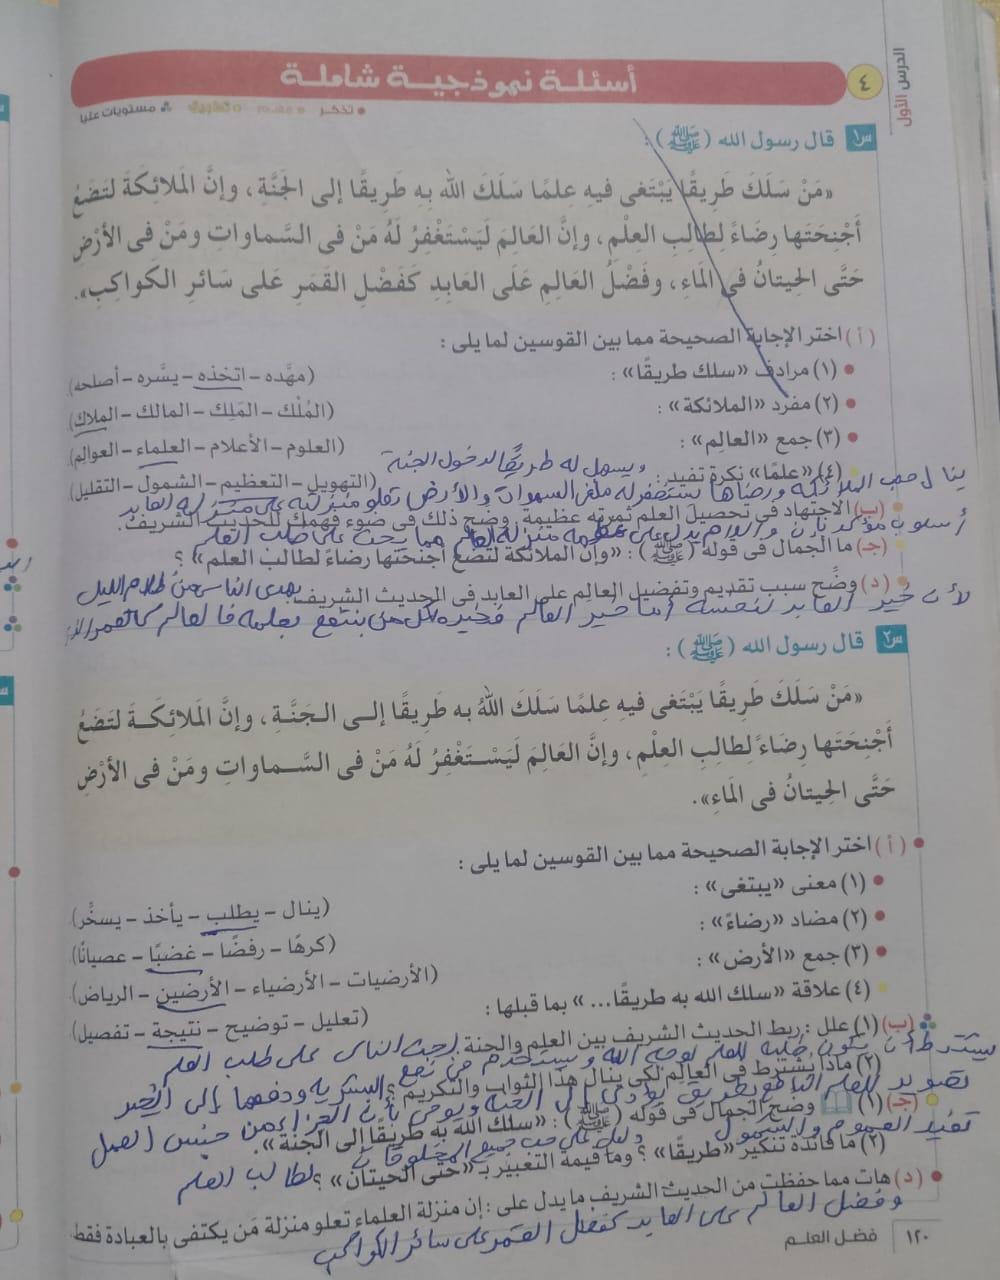 الدرس الأول
٤ أسئلة نموذجية شاملة
• تذكر • فهم • تطبيق • مستويات عليا
س١ قال رسول الله (ﷺ):
«مَنْ سَلَكَ طَرِيقًا يَبْتَغى فيه عِلمًا سَلَكَ الله بِهِ طَرِيقًا إلى الجَنَّةِ، وإنَّ المَلائِكَةَ لَتَضَعُ
أَجْنِحَتَها رِضَاءً لِطالِبِ العِلْمِ، وإنَّ العَالِمَ لَيَسْتَغْفِرُ لَهُ مَنْ فى السَّماواتِ ومَنْ فى الأرْضِ
حَتَّى الحِيتانُ فى المَاءِ، وفَضْلُ العَالِمِ عَلَى العَابِدِ كَفَضْلِ القَمَرِ عَلى سَائرِ الكَواكِبِ».
(أ) اختر الإجابة الصحيحة مما بين القوسين لما يلى :
• (١) مرادف «سلك طريقًا» : (مهَّده – اتخذه – يسَّره – أصلحه)
• (٢) مفرد «الملائكة» : (المُلْك – المَلِيك – المالك – الملاك)
• (٣) جمع «العالِم» : (العلوم – الأعلام – العلماء – العوالم)
ويسهل له طريقًا لدخول الجنة
• (٤) «علمًا» نكرة تفيد : (التهويل – التعظيم – الشمول – التقليل)
ينال حب الملائكة ورضاها يستغفر له من فى السموات والأرض وتعلو منزلته على منزلة العابد
• (ب) الاجتهاد فى تحصيل العلم ثمرته عظيمة. وضح ذلك فى ضوء فهمك للحديث الشريف.
أسلوب مؤكد بإن واللام يدل على عظمة منزلة العالم مما يحث على طلب العلم
• (جـ) ما الجمال فى قوله (ﷺ) : «وإن الملائكة لتضع أجنحتها رضاءً لطالب العلم» ؟
• (د) وضِّح سبب تقديم وتفضيل العالِم على العابد فى الحديث الشريف.
يهدى الناس من ظلام الليل
لأن خير العابد لنفسه أما خير العالم فخيره لكل من ينتفع بعلمه فالعالم كالقمر الذى
س٢ قال رسول الله (ﷺ) :
«مَنْ سَلَكَ طَرِيقًا يَبْتَغى فيهِ عِلمًا سَلَكَ اللهُ به طَرِيقًا إلـى الـجَنَّـةِ، وإنَّ المَلائِكَـةَ لَتَضَعُ
أَجْنِحَتَها رِضَاءً لِطالِبِ العِلْمِ، وإنَّ العَالِمَ لَيَسْتَغْفِرُ لَهُ مَنْ فى السَّـماواتِ ومَنْ فى الأرْضِ
حَتَّى الحِيتانُ فى المَاءِ».
• (أ) اختر الإجابة الصحيحة مما بين القوسين لما يلى :
• (١) معنى «يبتغى» : (ينال – يطلب – يأخذ – يسخِّر)
• (٢) مضاد «رضاءً» : (كرهًا – رفضًا – غضبًا – عصيانًا)
• (٣) جمع «الأرض» : (الأرضيات – الأرضياء – الأرضين – الرياض)
• (٤) علاقة «سلك الله به طريقًا... » بما قبلها : (تعليل – توضيح – نتيجة – تفصيل)
(ب) (١) علل : ربط الحديث الشريف بين العلم والجنة.
لحث الناس على طلب العلم
يشترط أن يكون طلبه للعلم لوجه الله ويستخدم فى نفع البشرية ودفعها إلى الخير
(٢) ماذا يشترط فى العالِم لكى ينال هذا الثواب والتكريم ؟
تصوير للعلم النافع بطريق يؤدى إلى الجنة ويوحى بأن الجزاء من جنس العمل
• (جـ) (١) وضح الجمال فى قوله (ﷺ) : «سلك الله به طريقًا إلى الجنة».
تفيد العموم والشمول
دليل على حب جميع المخلوقات لطالب العلم
(٢) ما فائدة تنكير «طريقًا» ؟ وما قيمة التعبير بـ «حتى الحيتان» ؟
• (د) هات مما حفظت من الحديث الشريف ما يدل على : إن منزلة العلماء تعلو منزلة مَن يكتفى بالعبادة فقط.
وفضل العالم على العابد كفضل القمر على سائر الكواكب
١٢٠ فضل العلم